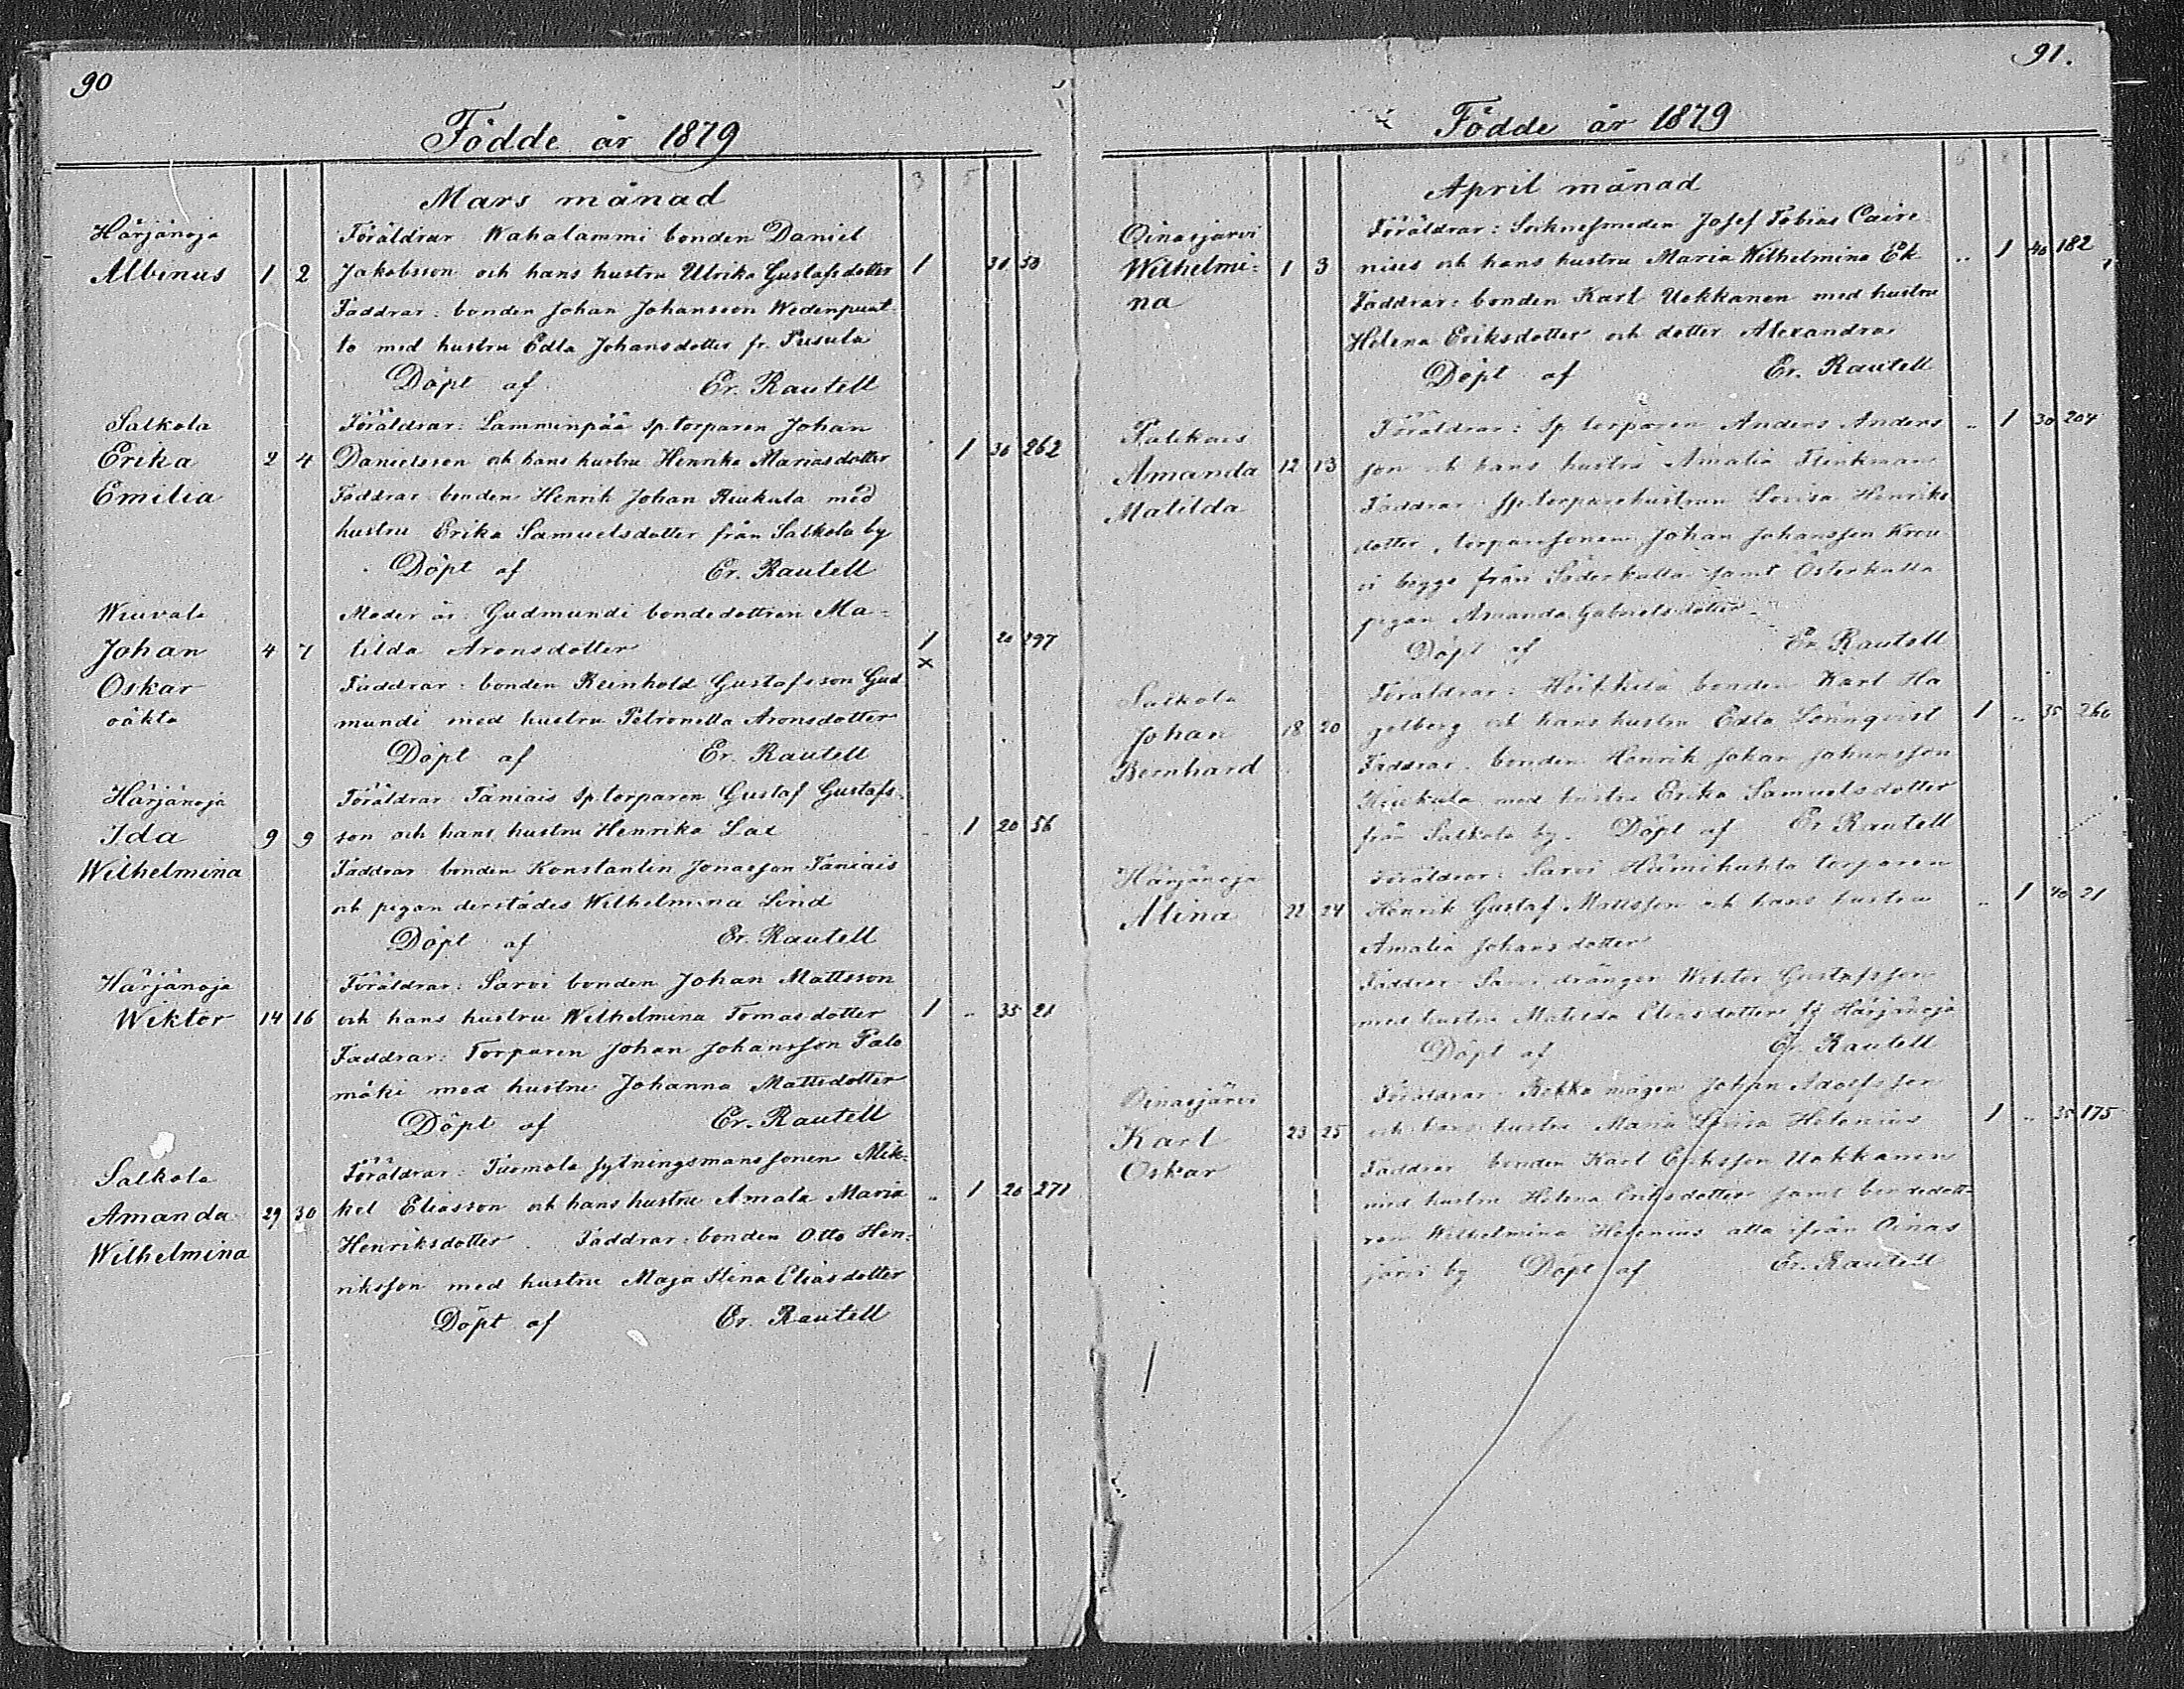 90
Födde år 1879
Mars månad
Härjänoja Föräldrar: Wahalammi bonden Daniel
Albinus 1 2 Jakobsson och hans hustru Ulrika Gustafsdotter 1 30
Faddrar: bonden Johan Johansson
to med hustru Edla Johansdotter fr. Pusula
Döpt af Er. Rautell
Salkola Föräldrar: Lamminpää sp.torparen Johan
Erika 2 4 Danielsson och hans hustru Henrika Mariasdotter 1 36 262
Emilia Faddrar bonden Henrik Johan Kiukula med
hustru Erika Samuelsdotter från Salkola by
Döpt af Er. Rautell
Wiuvala Moder är: Gudmundi bondedottren Ma-
Johan 4 7 tilda Aronsdotter 1 20 297
x
Oskar Faddrar: bonden Reinhold Gustafsson Gud
oäkta mundi med hustru Petronella Aronsdotter
Döpt af Er. Rautell
Härjänoja Föräldrar: Taniais sp.torparen Gustaf Gustafs-
Ida 9 9 son och hans hustru Henrika 1 20 56
Wilhelmina Faddrar bonden Konstantin Jonasson Taniais
och pigan derstädes Wilhelmina Lind
Döpt af Er. Rautell
Härjänoja Föräldrar: Sarvi bonden Johan Mattsson
Wiktor 14 16 och hans hustru Wilhelmina Tomasdotter 1 .. 35 21
Faddrar: Torparen Johan Johansson Palo
mäki med hustru Johanna Mattsdotter
Döpt af Er. Rautell
Salkola Föräldrar: Tuomola sytningsmanssonen Mik-
Amanda 29 30 kel Eliasson och hans hustru Amala Maria .. 1 20 271
Wilhelmina Henriksdotter. Faddrar: bonden Otto Hen-
riksson med hustru Maja Stina Eliasdotter
Döpt af Er. Rautell
91.
Födde år 1879
April månad
Oinasjärvi Föräldrar: Socknesmeden Josef Tobias Caire
Wilhelmi- 1 3 nius och hans hustru Maria Wilhelmina Ek .. 1 40 182
na Faddrar: bonden Karl Uokkanen med hustru
Helena Eriksdotter och dotter Alexandra
Döpt af Er. Rautell
Föräldrar: Sp. torparen Anders Anders .. 1 30 204
Amanda 12 13 son och hans hustru Amalia Flinkman
Matilda Faddrar: sp.torparehustrun Lovisa Henriks
dotter, torparesonen Johan Johansson
begge från Söderkulla samt Österkulla
pigan Amanda Gabrielsdotter
Döpt af Er. Rautell
Salkola Föräldrar: bonden Karl Ha
Johan 18 20 gelberg och hans hustru Edla Lönnqvist 1 .. 35 260
Bernhard Faddrar. bonden Henrik Johan Johansson
Kiukula med hustru Erika Samuelsdotter
från Salkola by. Döpt af Er. Rautell
Härjänoja Föräldrar: Sarvi torparen
Alina 22 24 Henrik Gustaf Mattsson och hans hustru .. 1 40 21
Amalia Johansdotter
Faddrar Sarvi drängen Wiktor Gustafsson
med hustru Matilda Eliasdotter fr Härjänoja
Döpt af Er. Rautell
Oinasjärvi Föräldrar: mågen Johan Adolfsson
Karl 23 25 och hans hustru Maria Lovisa Helenius 1 .. 35 175
Oskar Faddrar bonden Karl Eriksson Uokkanen
med hustru Helena Eriksdotter samt bondedott-
ren Wilhelmina Helenius alla ifrån Oinas
järvi by Döpt af Er. Rautell